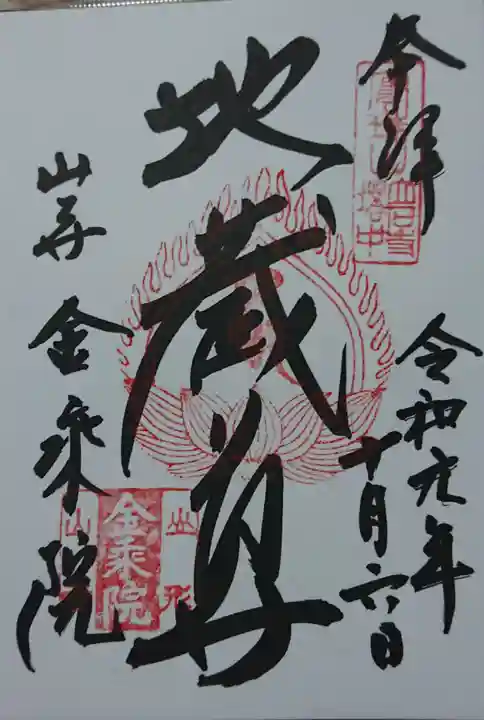 奉拝
令和元年
十月六日
地蔵尊
山寺 金乗院
金乗院
山形